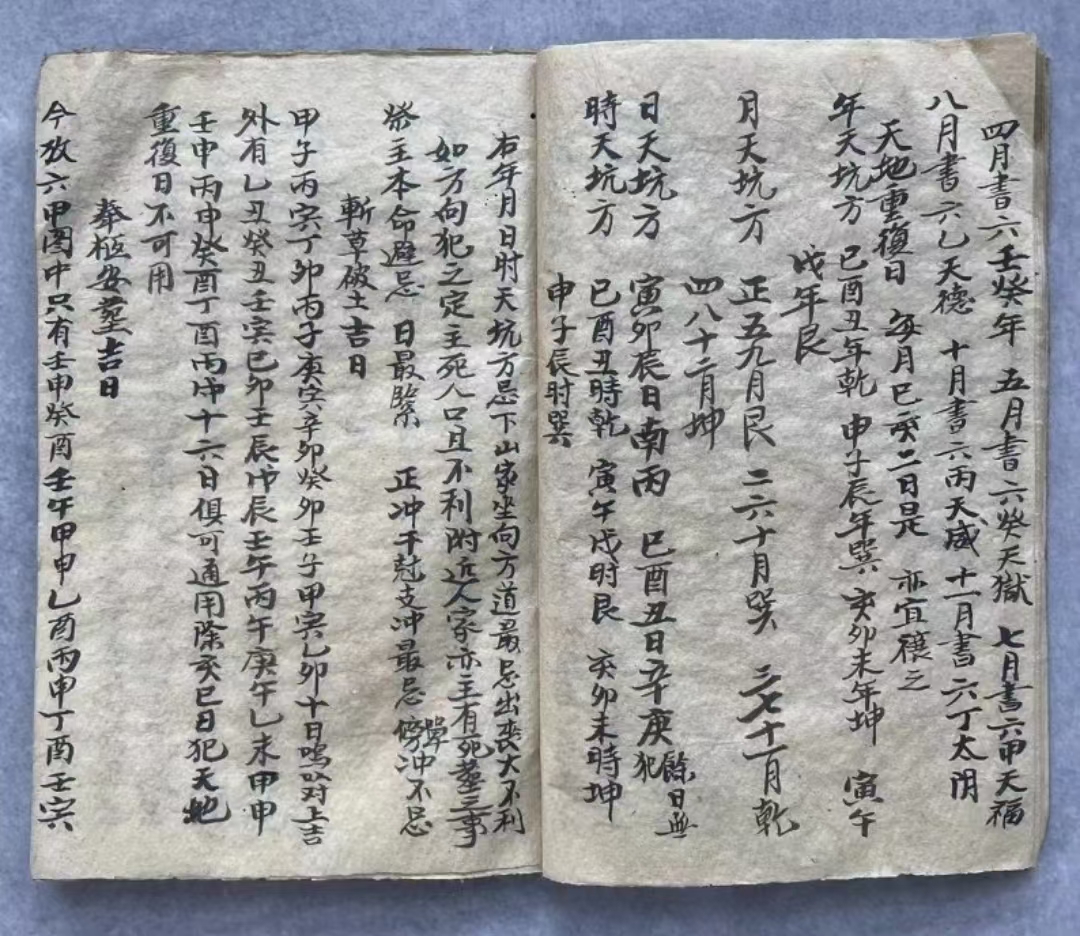 四月書六壬癸年 五月書六癸天獄 七月書六甲天福
八月書六乙天德 十月書六丙天威 十一月書六丁太阴
天地重復日 每月巳亥二日是 亦宜禳之
年天坑方 巳酉丑年乾 申子辰年巽 亥卯未年坤 寅午
戌年艮
月天坑方 正五九月艮 二六十月巽 三七十一月乾
四八十二月坤
日天坑方 寅卯辰日南丙 巳酉丑日辛庚 餘日無犯
時天坑方 巳酉丑時乾 寅午戌时艮 亥卯未時坤
申子辰时巽
右年月日时天坑方忌下山家坐向方道最忌出喪大不利
如方向犯之定主死人口且不利附近人家亦主有死葬三事
祭主本命避忌 日最緊 正冲干尅支冲最忌 傍冲不忌
斬草破土吉日
甲子丙寅丁卯丙子庚寅辛卯癸卯壬子甲寅乙卯十日鳴吠对上吉
外有乙丑癸丑壬寅己卯壬辰戊辰壬午丙午庚午乙未甲申
壬申丙申癸酉丁酉丙戌十六日俱可通用除亥巳日犯天地
重復日不可用
奉柩安葬吉日
今攷六甲图中只有壬申癸酉壬午甲申乙酉丙申丁酉壬寅